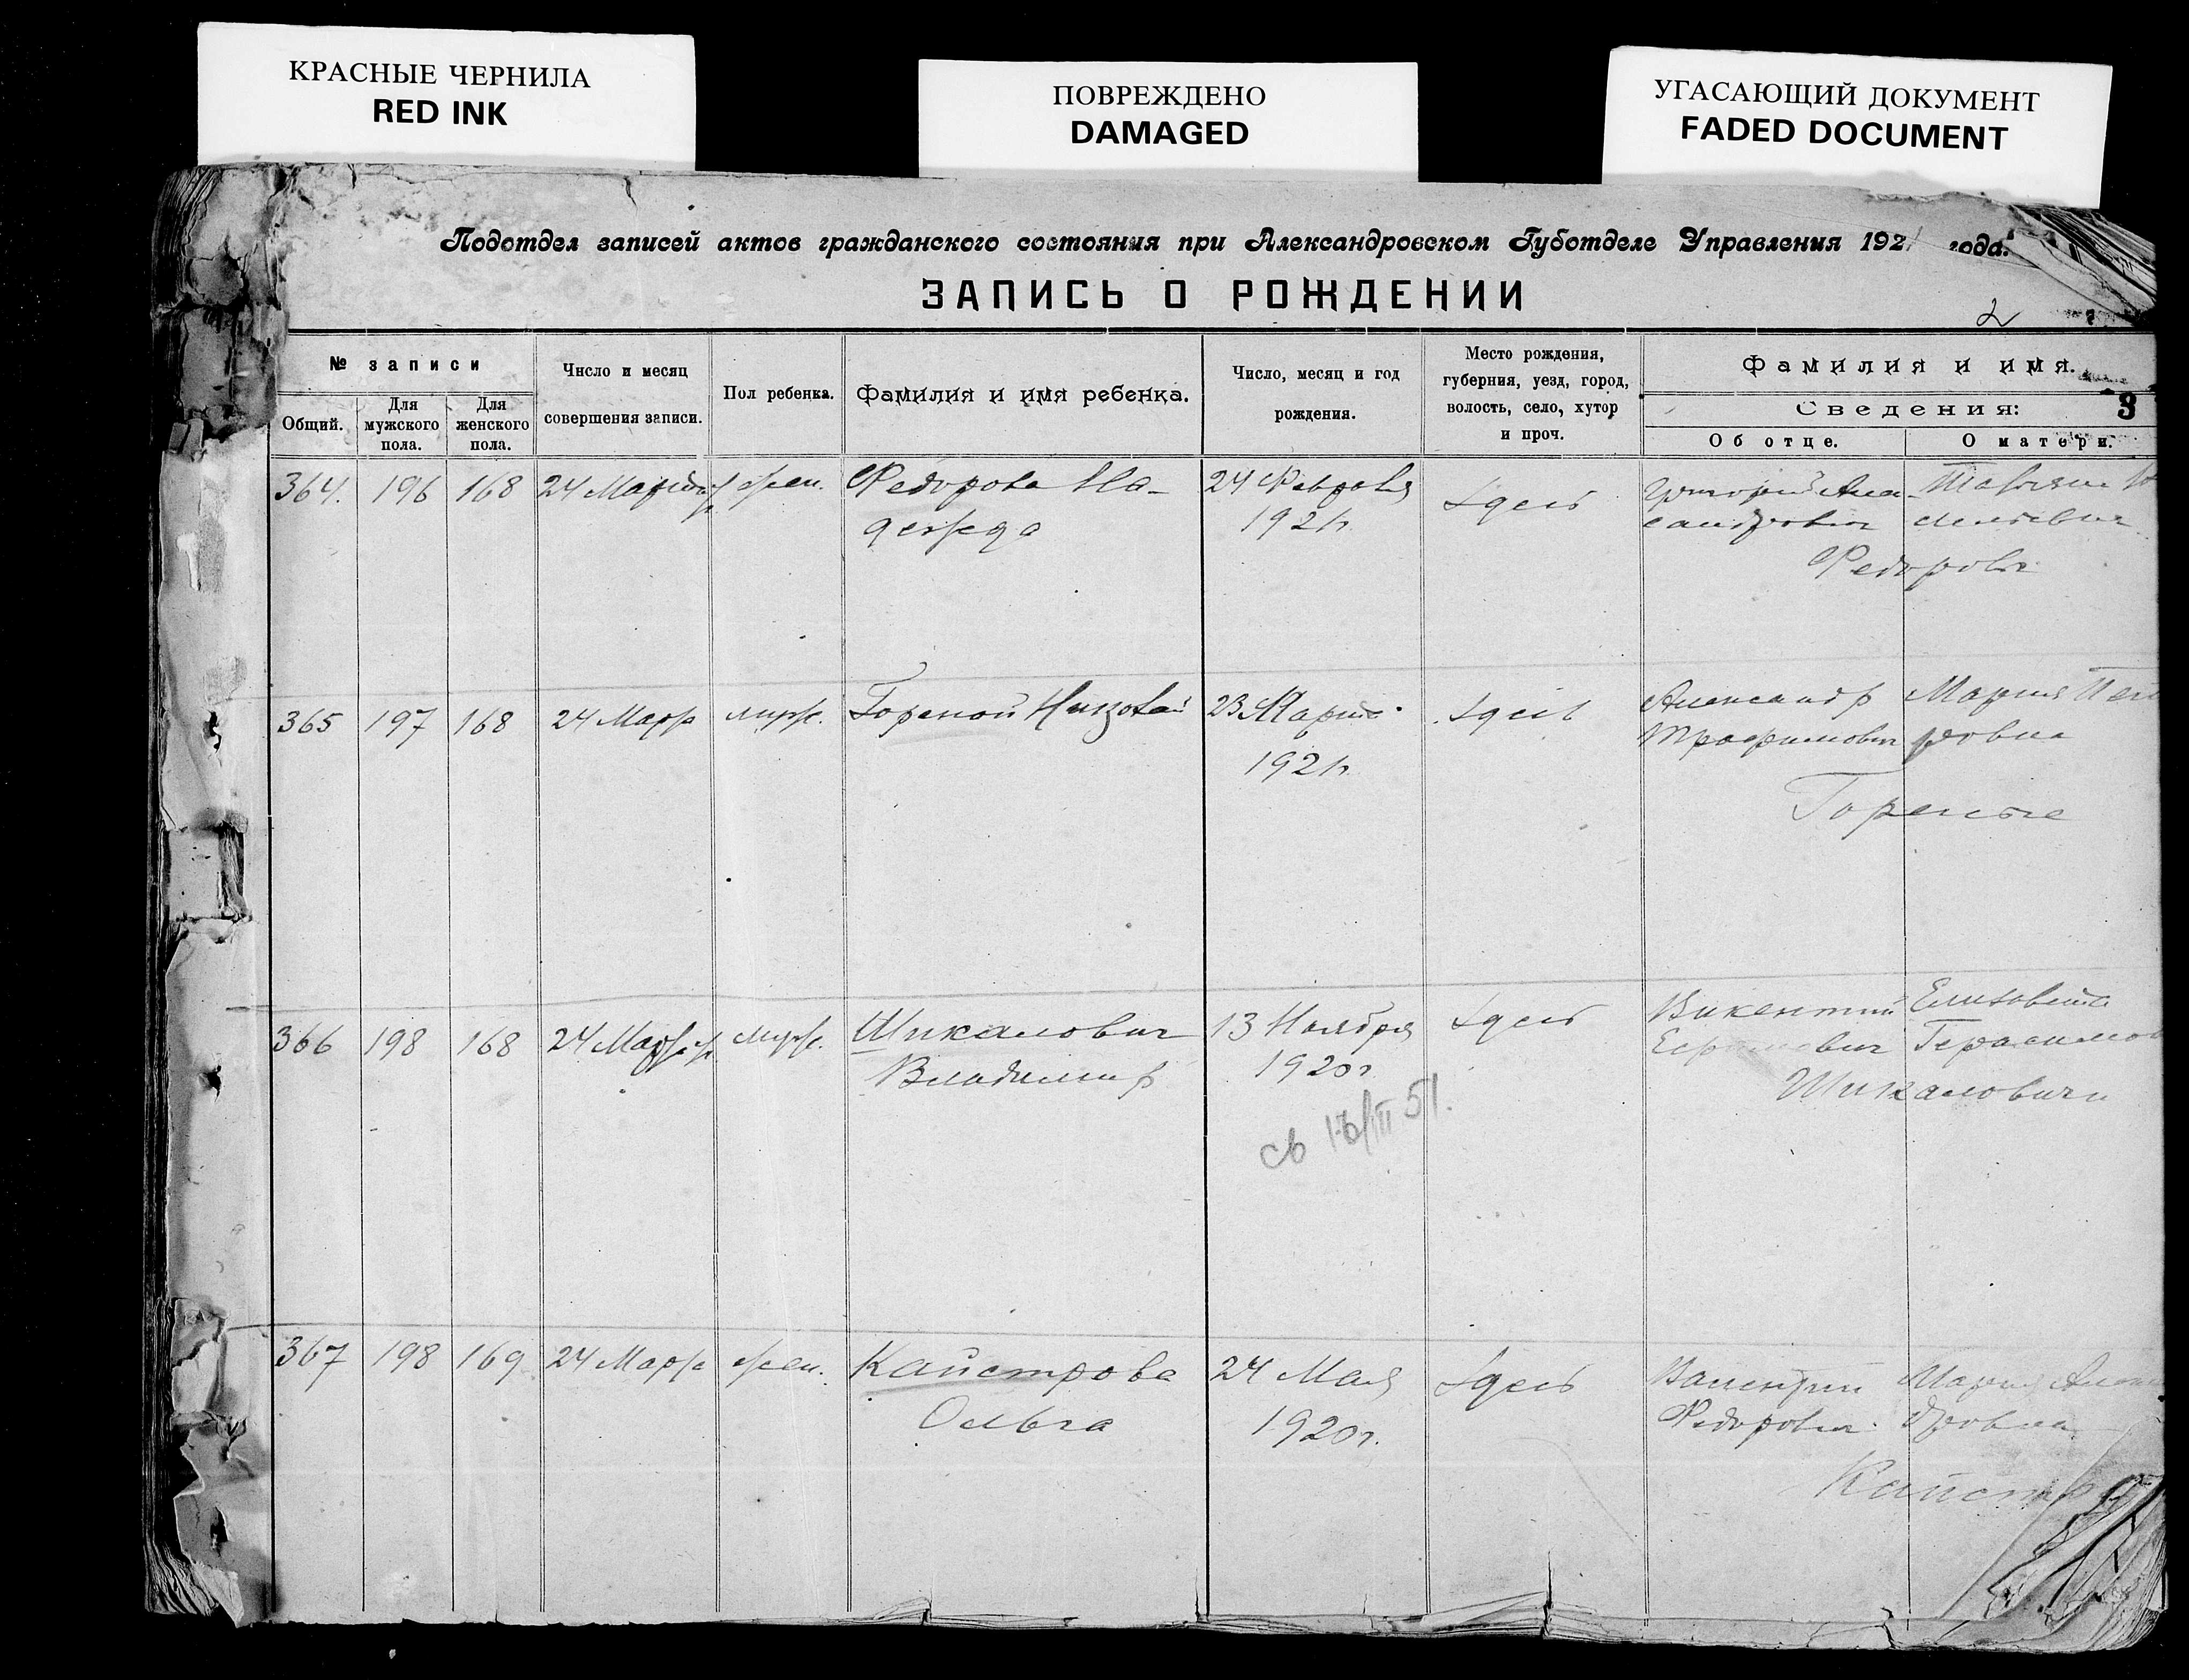 КРАСНЫЕ ЧЕРНИЛА
RED INK
ПОВРЕЖДЕНО
DAMAGED
УГАСАЮЩИЙ ДОКУМЕНТ
FADED DOCUMENT
Подотдел записей актов гражданского состояния при Александровском Губотделе Управления 1921 года.
ЗАПИСЬ О РОЖДЕНИИ
2
№ записи
Общий.
Для мужского пола.
Для женского пола.
Число и месяц
совершения записи.
Пол ребенка.
Фамилия и имя ребенка.
Число, месяц и год
рождения.
Место рождения,
губерния, уезд, город,
волость, село, хутор
и проч.
Фамилия и имя.
Сведения:
3
Об отце.
О матери.
364. 196 168 24 Марта жен. Федорова На- 24 Февраля Здесь Григорий Алек-
дежда 1921г. сандрович
Федоровы
365 197 168 24 Марта муж. Горепой 23 Марта Здесь Александр Мария
1921г. Трофимович ровна
366 198 168 24 Марта муж. Шикалович 13 Ноября Здесь Викентий Елизавета
Владимир 1920г. Герасимов
Шикаловичи
св II 51.
367 198 169 24 Марта жен. Кайстрова 24 Мая Здесь Валентин Мария
Ольга 1920г. Федорович дровна
Кайстр